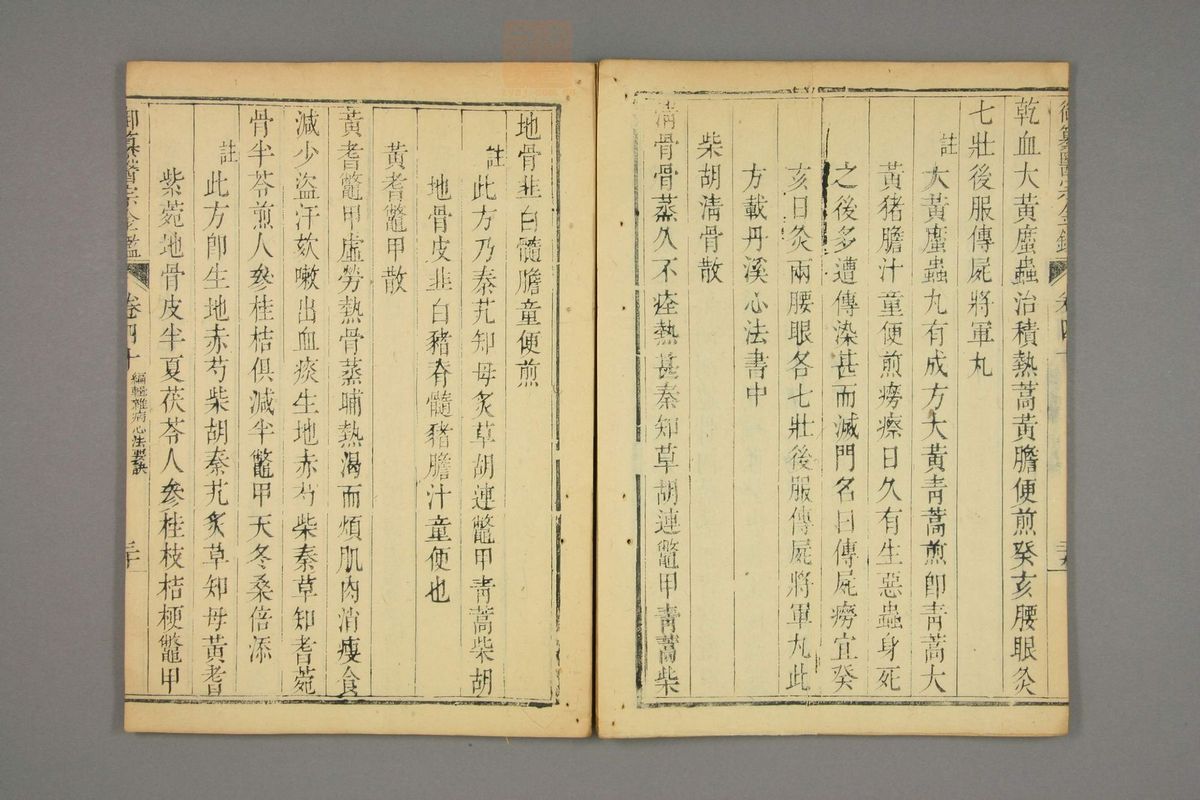 卷四十
乾血大黃䗪蟲治積熱蒿黃膽便煎癸亥腰眼灸
七壯後服傳屍將軍丸
註
大黃䗪蟲丸有成方大黃青蒿煎即青蒿大
黃猪膽汁童便煎癆瘵日久有生惡蟲身死
之後多遭傳染甚而滅門名曰傳屍癆宜癸
亥日灸兩腰眼各七壯後服傳屍將軍丸此
方載丹溪心法書中
柴胡清骨散
清骨骨蒸久不痊熱甚秦知草胡連鼈甲青蒿柴
地骨韭白髓膽童便煎
註
此方乃秦艽知母炙草胡連鼈甲青蒿柴胡
地骨皮韭白豬脊髓豬膽汁童便也
黃耆鼈甲散
黃耆鼈甲虛勞熱骨蒸晡熱渴而煩肌肉消瘦食
減少盜汗欬嗽出血痰生地赤芍柴秦草知耆菀
骨半苓煎人參桂桔俱減半鼈甲天冬桑倍添
註
此方卽生地赤芍柴胡秦艽炙草知母黃耆
紫菀地骨皮半夏茯苓人參桂枝桔梗鼈甲
御纂醫宗金鑑
卷四十
編輯雜病心法要訣
三十